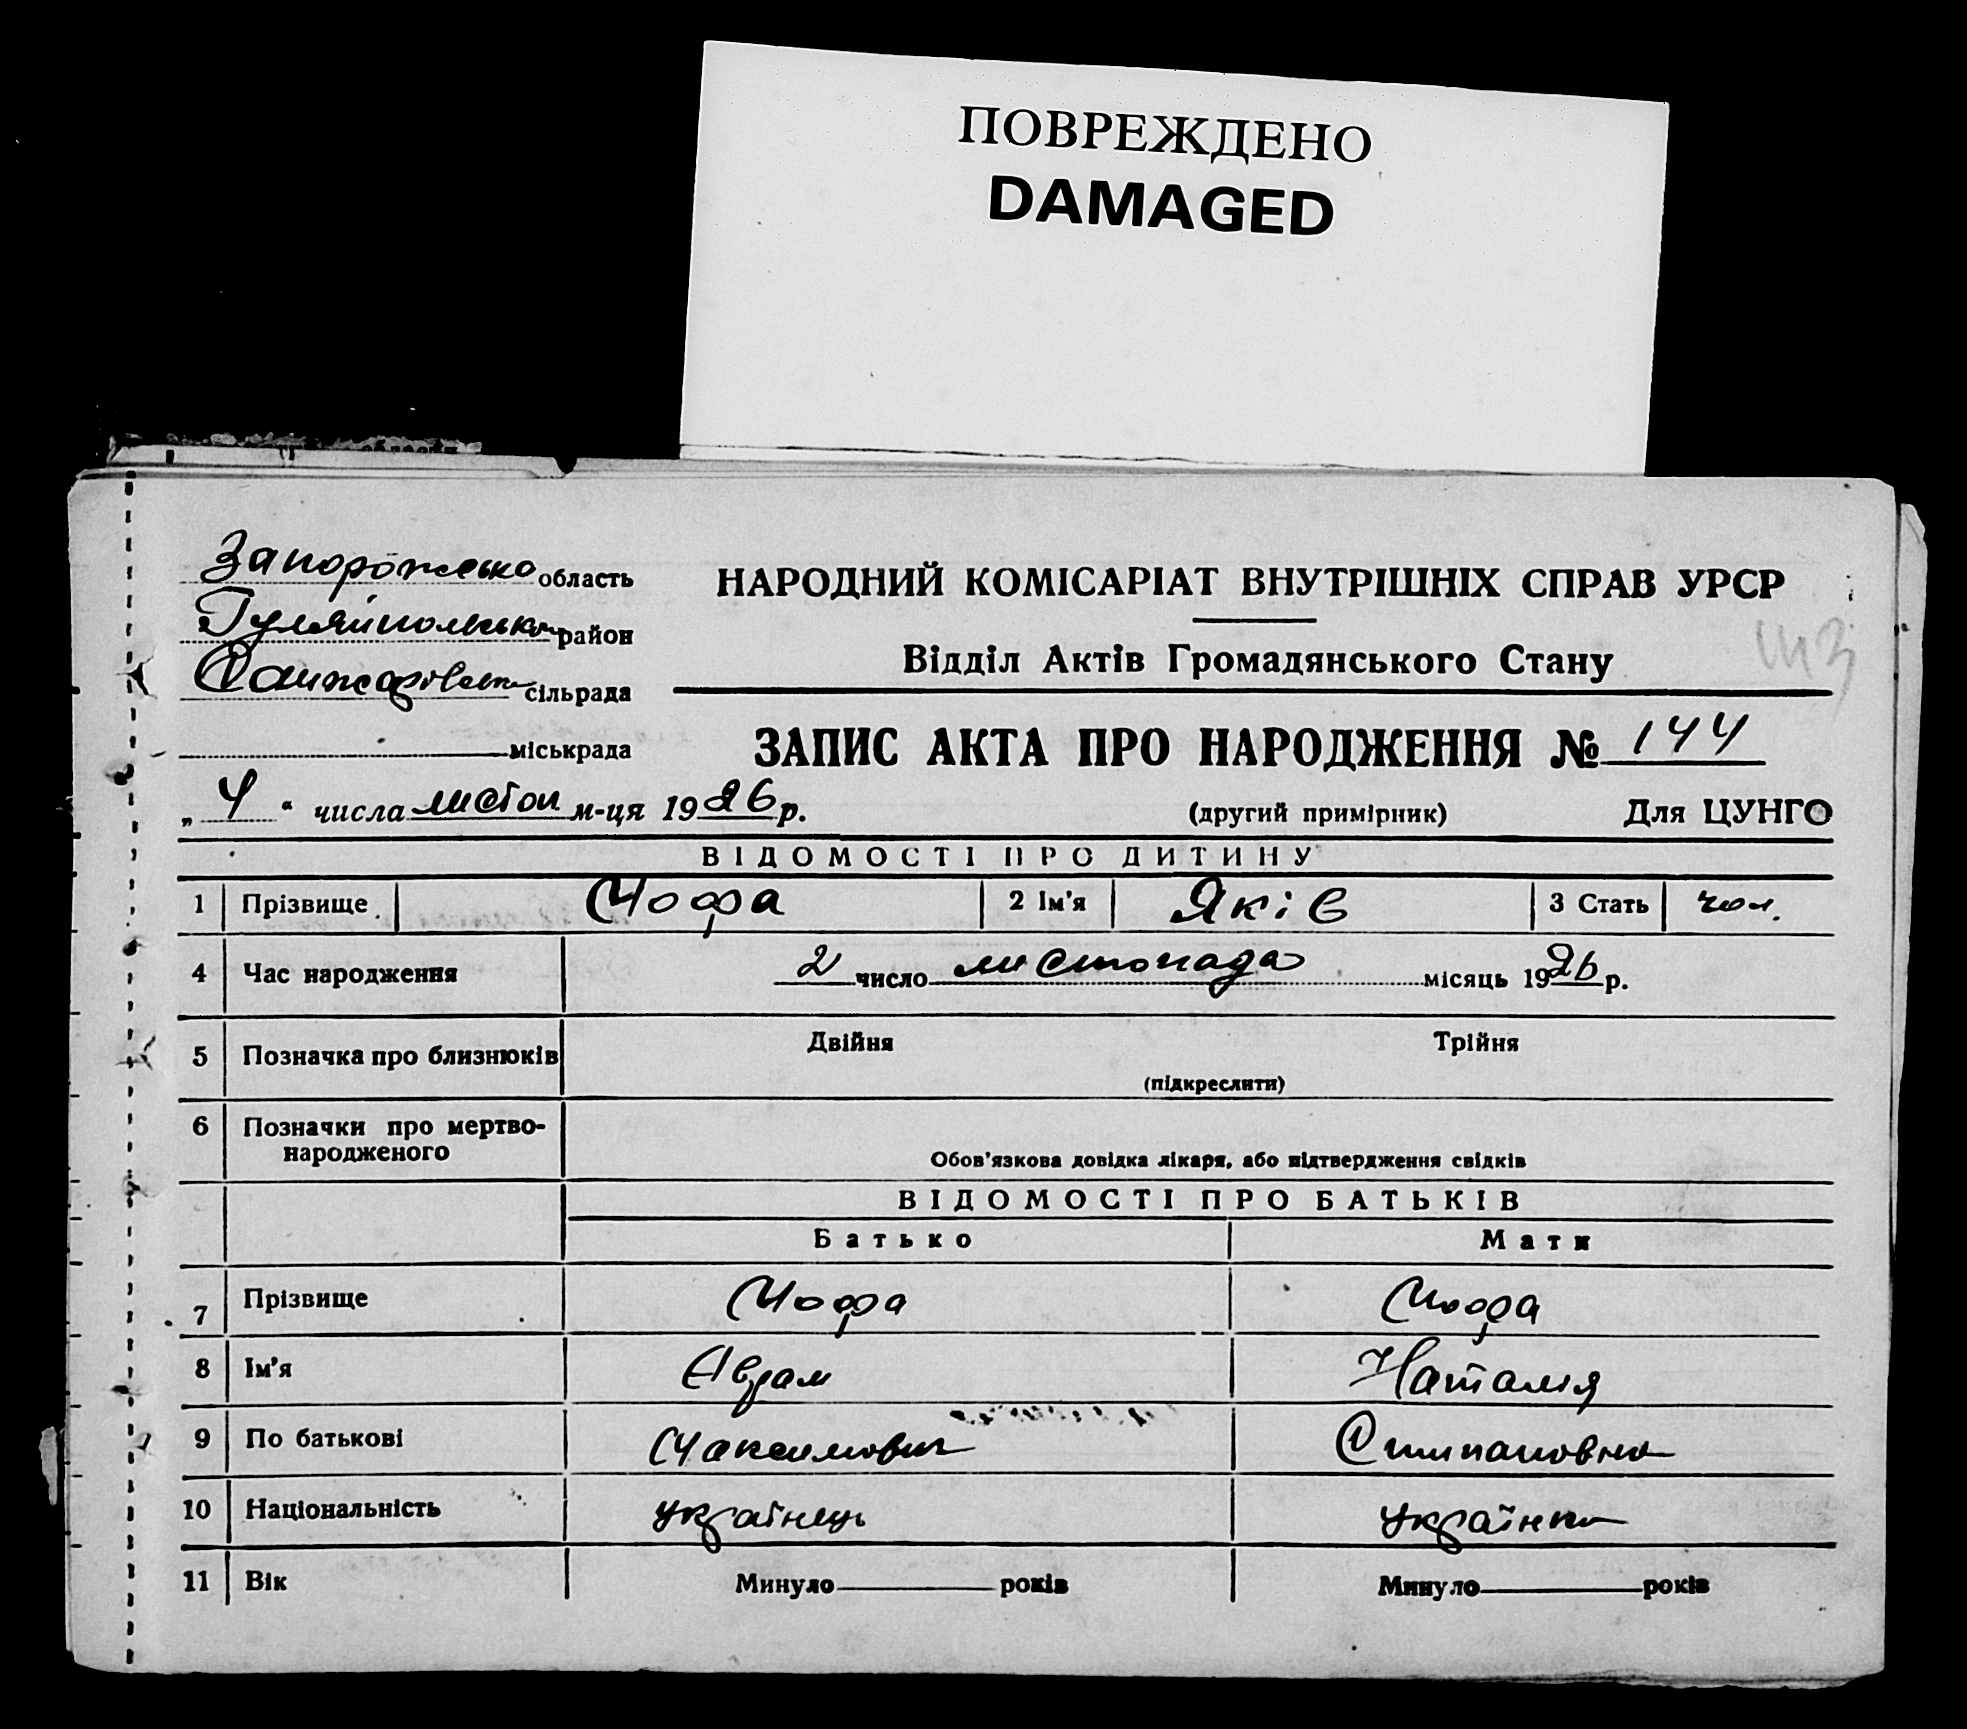 ПОВРЕЖДЕНО
DAMAGED
Запорожська область
Гуляйпольськ район
сільрада
міськрада
НАРОДНИЙ КОМІСАРІАТ ВНУТРІШНІХ СПРАВ УРСР
Відділ Актів Громадянського Стану
ЗАПИС АКТА ПРО НАРОДЖЕННЯ № 144
„ 4 “ числа листоп м-ця 1926 р. (другий примірник) Для ЦУНГО
ВІДОМОСТІ ПРО ДИТИНУ
1 Прізвище Мофа 2 Ім'я Яків 3 Стать чол.
4 Час народження 2 число листопада місяць 1926 р.
5 Позначка про близнюків Двійня Трійня
(підкреслити)
6 Позначки про мертво-
народженого
Обов'язкова довідка лікаря, або підтвердження свідків
ВІДОМОСТІ ПРО БАТЬКІВ
Батько Мати
7 Прізвище Мофа Мофа
8 Ім'я Аврам Наталія
9 По батькові Максимович
10 Національність українець українка
11 Вік Минуло років Минуло років